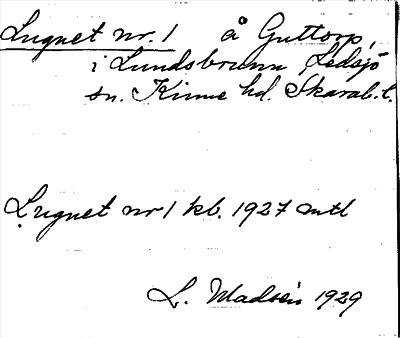 Lugnet nr. 1 å Guttorp,
i Lundsbrunn, Ledsjö
sn. Kinne hd. Skarab. l.
Lugnet nr 1 kb. 1927 mtl
L. Madsén 1929